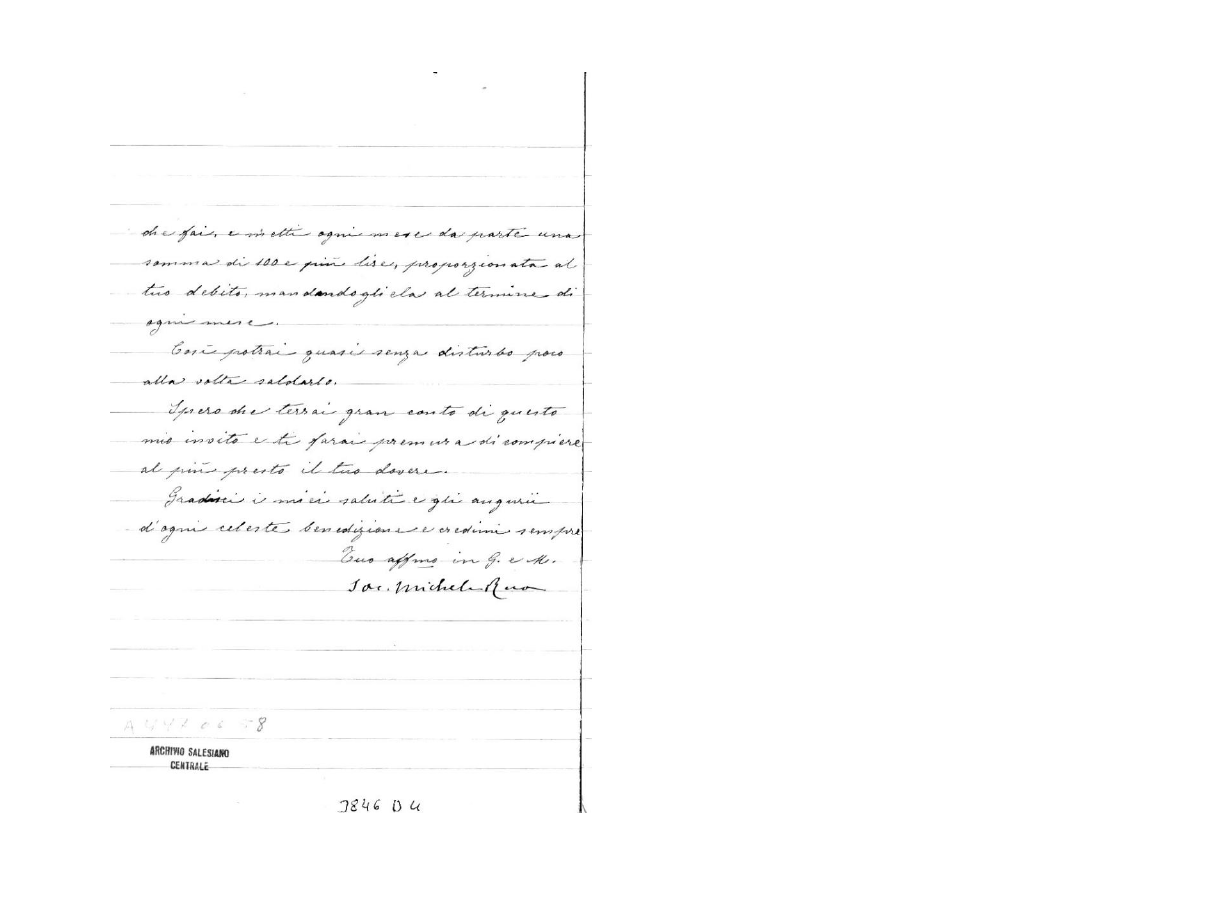 che fai, e metti ogni mese da parte una
somma di 100 e più lire, proporzionata al
tuo debito, mandandogliela al termine di
ogni mese.
Così potrai quasi senza disturbo poco
alla volta saldarlo.
Spero che terrai gran conto di questo
mio invito e ti farai premura di compiere
al più presto il tuo dovere.
Gradisci i miei saluti e gli augurii
d'ogni celeste benedizione e credimi sempre
Tuo affmo in G. e M.
Sac. Michele Rua
ARCHIVIO SALESIANO
CENTRALE
3846 D 4